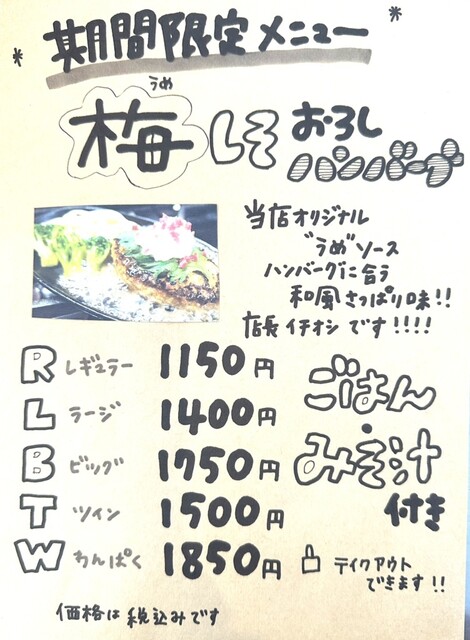 * 期間限定メニュー *
うめ
梅しそおろし
ハンバーグ
当店オリジナル
"うめ"ソース
ハンバーグに合う
和風さっぱり味!!
店長イチオシです!!!!
R レギュラー 1150円
L ラージ 1400円
B ビッグ 1750円
T ツイン 1500円
W わんぱく 1850円
ごはん
・
みそ汁
付き
テイクアウト
できます!!
価格は税込みです